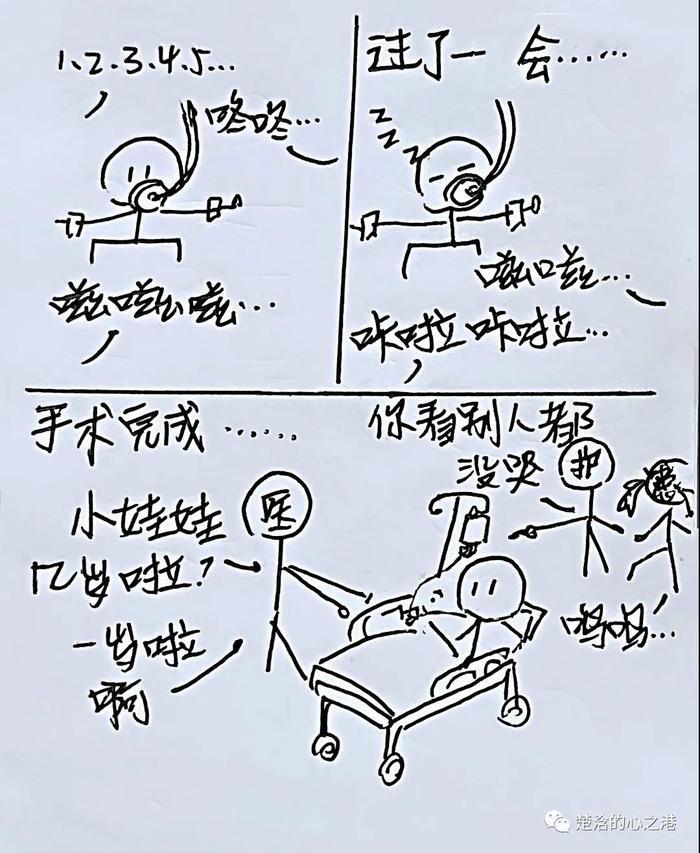 1.2.3.4.5...
咚咚...
嗞嗞嗞...
过了一会......
z
z
z
嗞嗞...
咔啦咔啦...
手术完成......
小娃娃
几岁啦?
一岁啦
啊
医
你看别人都
没哭
护
呜呜...
楚浛的心之港